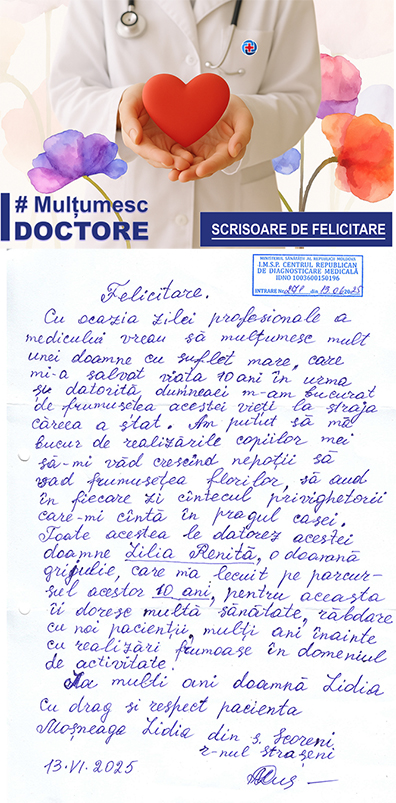 # Mulțumesc
DOCTORE
SCRISOARE DE FELICITARE
MINISTERUL SĂNĂTĂȚII AL REPUBLICII MOLDOVA
I.M.S.P. CENTRUL REPUBLICAN
DE DIAGNOSTICARE MEDICALĂ
IDNO 1003600150196
INTRARE Nr. din 13.06.2025
Felicitare.
Cu ocazia zilei profesionale a
medicului vreau să mulțumesc mult
unei doamne cu suflet mare, care
mi-a salvat viața 10 ani în urmă
și datorită dumneaei m-am bucurat
de frumusețea acestei vieți la straja
căreea a stat. Am putut să mă
bucur de realizările copiilor mei
să-mi văd crescînd nepoții să
văd frumusețea florilor, să aud
în fiecare zi cîntecul privighetorii
care-mi cîntă în pragul casei.
Toate acestea le datorez acestei
doamne Lilia Reniță, o doamnă
grijulie, care m-a lecuit pe parcur-
sul acestor 10 ani, pentru aceasta
îi doresc multă sănătate, răbdare
cu noi pacienții, mulți ani înainte
cu realizări frumoase în domeniul
de activitate.
La mulți ani doamnă Lidia
cu drag și respect pacienta
Moșneaga Lidia din s. Scoreni
r-nul strașeni
13.VI.2025